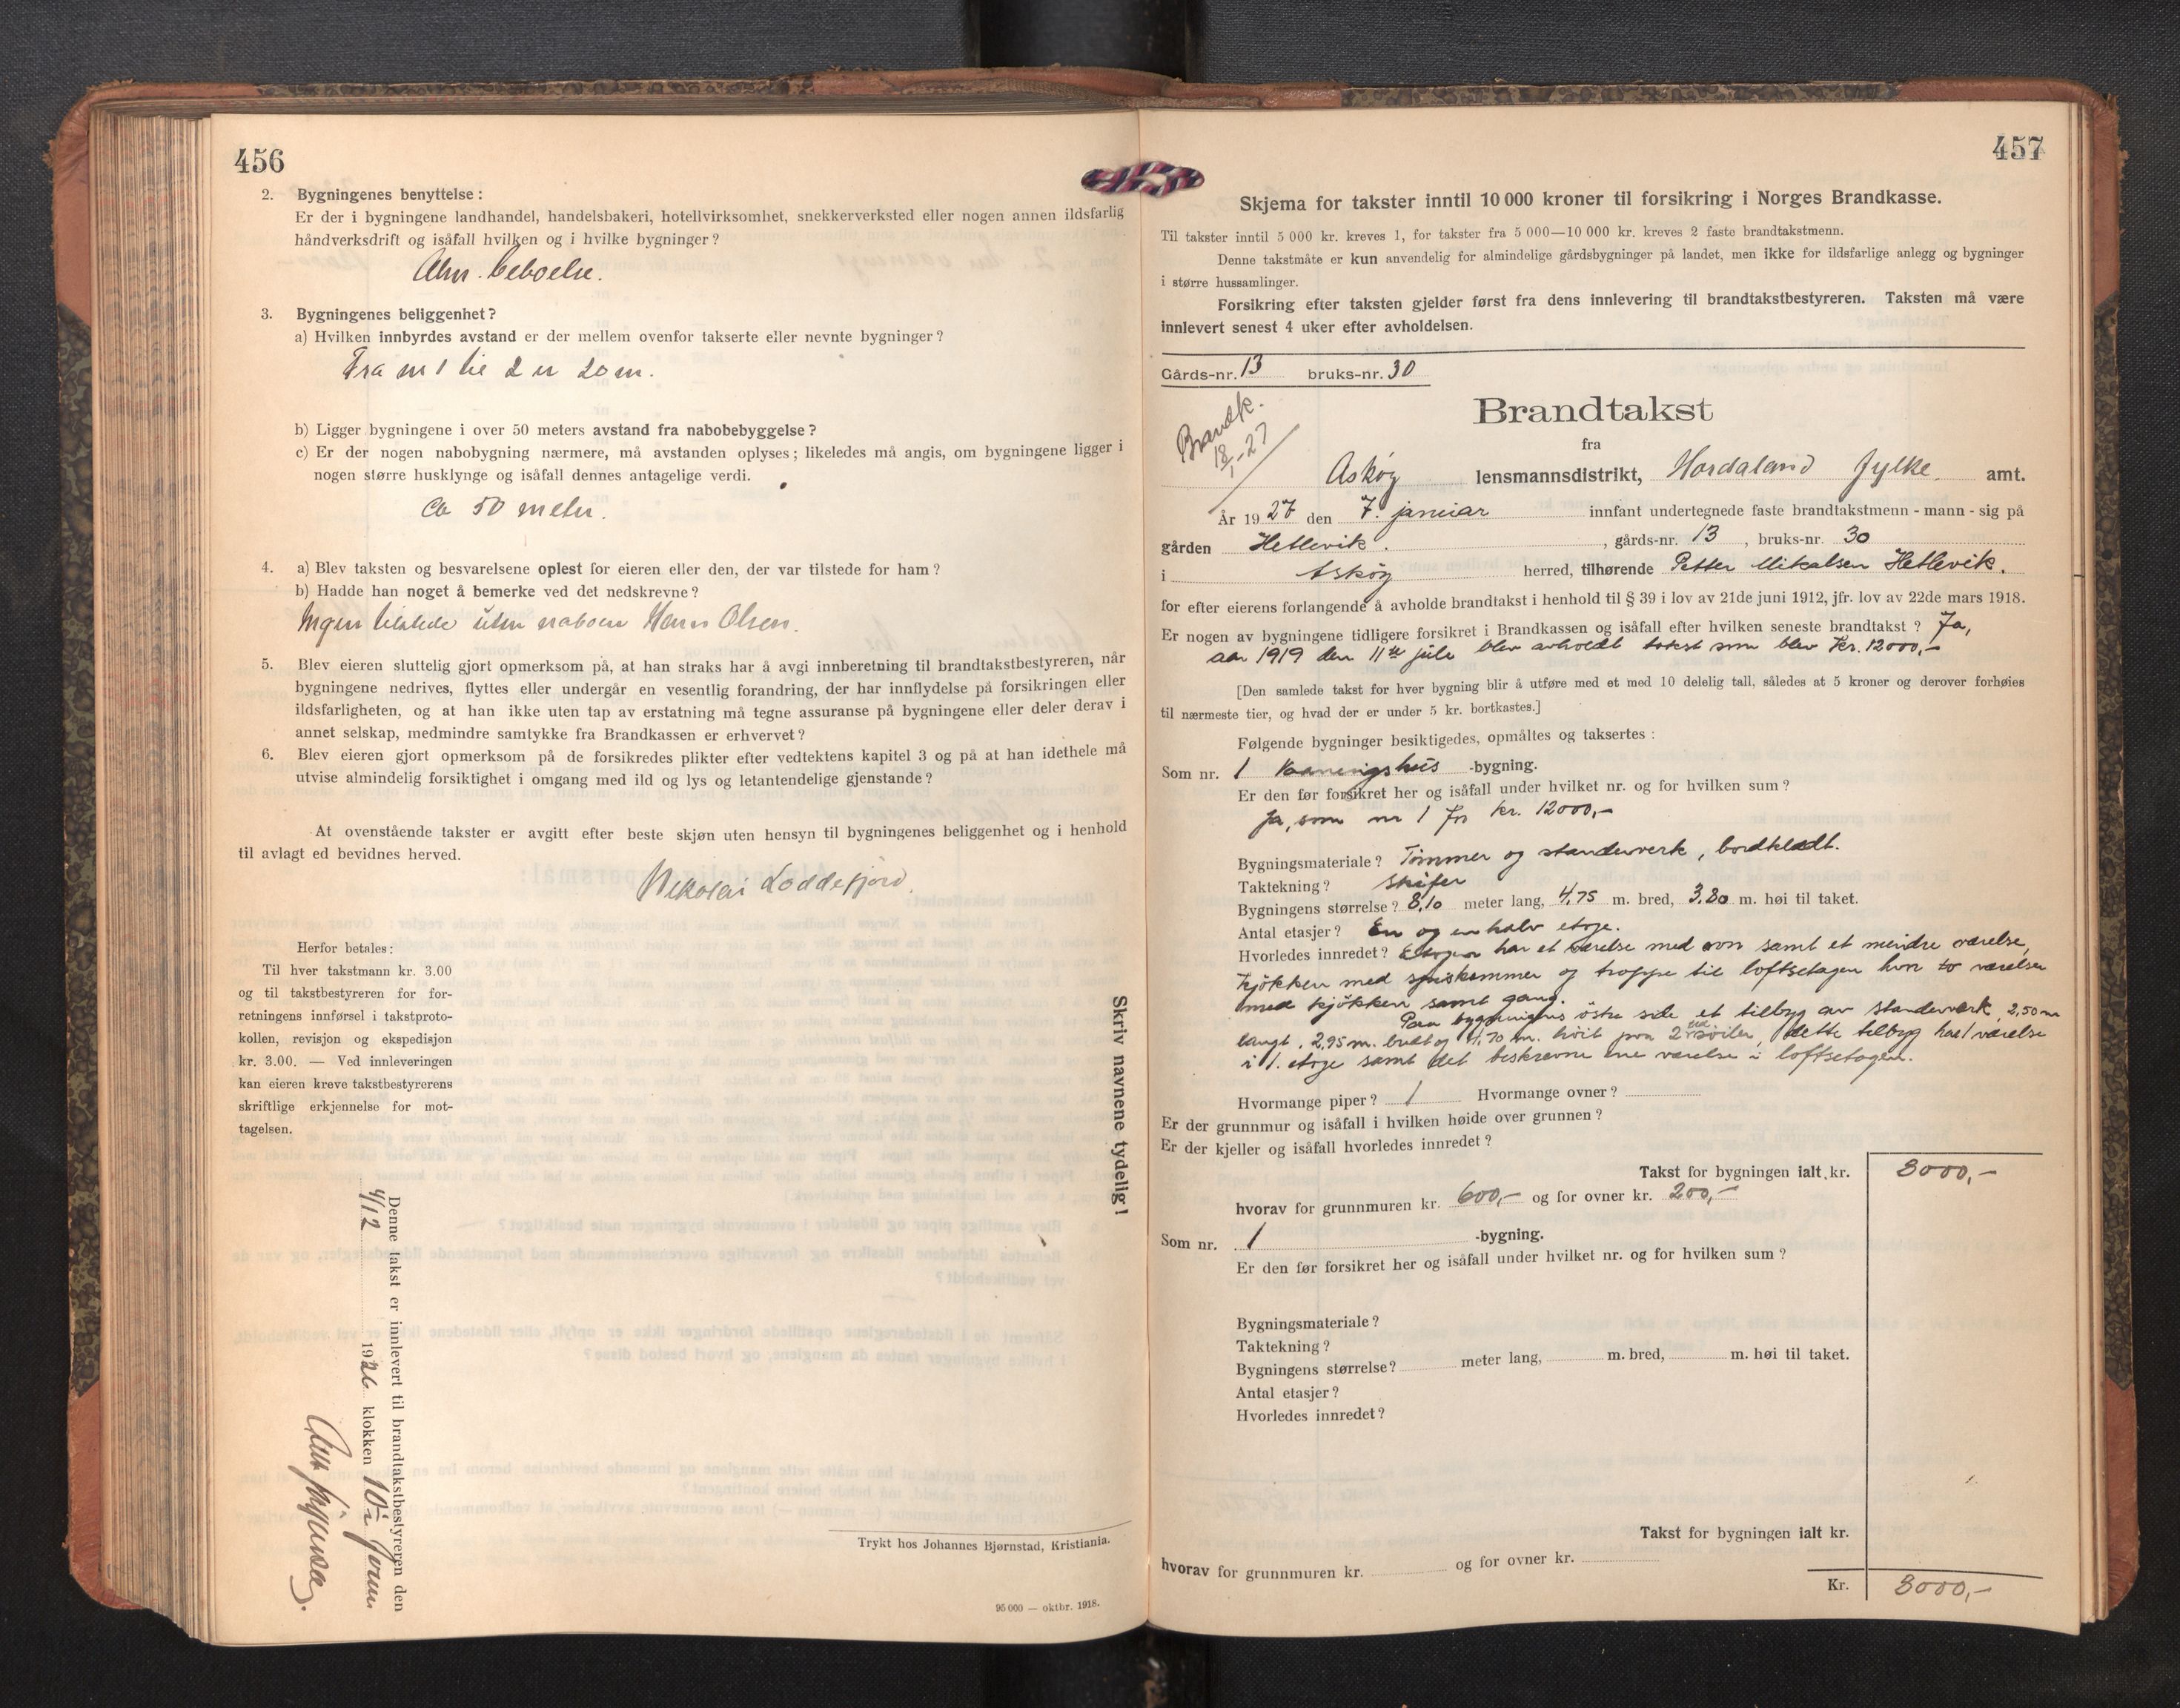 456
2. Bygningenes benyttelse:
Er der i bygningene landhandel, handelsbakeri, hotellvirksomhet, snekkerverksted eller nogen annen ildsfarlig
håndverksdrift og isåfall hvilken og i hvilke bygninger?
Alm. beboelse.
3. Bygningenes beliggenhet?
a) Hvilken innbyrdes avstand er der mellem ovenfor takserte eller nevnte bygninger?
Fra nr 1 til 2 er 20 m.
b) Ligger bygningene i over 50 meters avstand fra nabobebyggelse?
c) Er der nogen nabobygning nærmere, må avstanden oplyses; likeledes må angis, om bygningene ligger i
nogen større husklynge og isåfall dennes antagelige verdi.
Ca 50 meter.
4. a) Blev taksten og besvarelsene oplest for eieren eller den, der var tilstede for ham?
b) Hadde han noget å bemerke ved det nedskrevne?
Ingen tilstede uten naboen Hans Olsen.
5. Blev eieren sluttelig gjort opmerksom på, at han straks har å avgi innberetning til brandtakstbestyreren, når
bygningene nedrives, flyttes eller undergår en vesentlig forandring, der har innflydelse på forsikringen eller
ildsfarligheten, og at han ikke uten tap av erstatning må tegne assuranse på bygningene eller deler derav i
annet selskap, medmindre samtykke fra Brandkassen er erhvervet?
6. Blev eieren gjort opmerksom på de forsikredes plikter efter vedtektens kapitel 3 og på at han idethele må
utvise almindelig forsiktighet i omgang med ild og lys og letantendelige gjenstande?
At ovenstående takster er avgitt efter beste skjøn uten hensyn til bygningenes beliggenhet og i henhold
til avlagt ed bevidnes herved.
Nikolai Loddefjord.
Herfor betales:
Til hver takstmann kr. 3.00
og til takstbestyreren for for-
retningens innførsel i takstproto-
kollen, revisjon og ekspedisjon
kr. 3.00. — Ved innleveringen
kan eieren kreve takstbestyrerens
skriftlige erkjennelse for mot-
tagelsen.
Skriv navnene tydelig!
Denne takst er innlevert til brandtakstbestyreren den
4/12 1926 klokken 10
Trykt hos Johannes Bjørnstad, Kristiania.
95 000 — oktbr. 1918.
457
Skjema for takster inntil 10 000 kroner til forsikring i Norges Brandkasse.
Til takster inntil 5 000 kr. kreves 1, for takster fra 5 000—10 000 kr. kreves 2 faste brandtakstmenn.
Denne takstmåte er kun anvendelig for almindelige gårdsbygninger på landet, men ikke for ildsfarlige anlegg og bygninger
i større hussamlinger.
Forsikring efter taksten gjelder først fra dens innlevering til brandtakstbestyreren. Taksten må være
innlevert senest 4 uker efter avholdelsen.
Gårds-nr. 13 bruks-nr. 30
Brandk.
18/1-27
Brandtakst
fra
Askøy lensmannsdistrikt, Hordaland fylke. amt.
År 1927 den 7. januar innfant undertegnede faste brandtakstmenn - mann - sig på
gården Hetlevik. , gårds-nr. 13 , bruks-nr. 30
i Askøy herred, tilhørende Petter Mikalsen Hetlevik.
for efter eierens forlangende å avholde brandtakst i henhold til § 39 i lov av 21de juni 1912, jfr. lov av 22de mars 1918.
Er nogen av bygningene tidligere forsikret i Brandkassen og isåfall efter hvilken seneste brandtakst? Ja,
aar 1919 den 11te juli blev avholdt takst som blev Kr. 12000,-
[Den samlede takst for hver bygning blir å utføre med et med 10 delelig tall, således at 5 kroner og derover forhøies
til nærmeste tier, og hvad der er under 5 kr. bortkastes.]
Følgende bygninger besiktigedes, opmåltes og taksertes:
Som nr. 1 Vaaningshus -bygning.
Er den før forsikret her og isåfall under hvilket nr. og for hvilken sum?
Ja, som nr 1 for kr. 12000,-
Bygningsmateriale? Tømmer og standerverk, bordklædt.
Taktekning? Skifer
Bygningens størrelse? 8,10 meter lang, 4,75 m. bred, 3,80 m. høi til taket.
Antal etasjer? En og en halv etage.
Hvorledes innredet? Etagen har et værelse med ovn samt et mindre værelse,
kjøkken med spiskammer og trappe til loftsetagen hvor to værelser
med kjøkken samt gang.
Paa bygningens østre side et tilbyg av standerværk, 2,50 m
langt, 2,95 m. bredt og 4,70 m. høit paa 2 søiler, dette tilbyg har 1 værelse
i 1. etage samt det beskrevne ene værelse i loftsetagen.
Hvormange piper? 1 Hvormange ovner?
Er der grunnmur og isåfall i hvilken høide over grunnen?
Er der kjeller og isåfall hvorledes innredet?
Takst for bygningen ialt kr. 3000,-
hvorav for grunnmuren kr. 600,- og for ovner kr. 200,-
Som nr. 1 -bygning.
Er den før forsikret her og isåfall under hvilket nr. og for hvilken sum?
Bygningsmateriale?
Taktekning?
Bygningens størrelse? meter lang, m. bred, m. høi til taket.
Antal etasjer?
Hvorledes innredet?
Takst for bygningen ialt kr.
hvorav for grunnmuren kr. og for ovner kr.
Kr. 3000,-